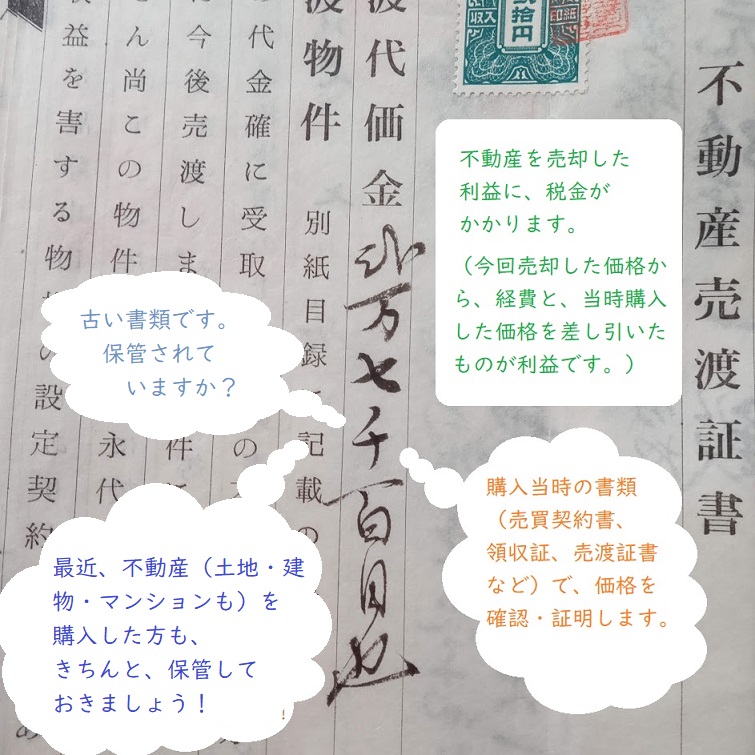 不動産売渡証書
収入印紙
拾円
渡代価金弐万七千百円也
渡物件 別紙目録に記載の
代金確に受取
の
今後売渡しま
件に
せん尚この物件
永代
益を害する物
の設定契約
不動産を売却した
利益に、税金が
かかります。
（今回売却した価格か
ら、経費と、当時購入
した価格を差し引いた
ものが利益です。）
古い書類です。
保管されて
いますか？
購入当時の書類
（売買契約書、
領収証、売渡証書
など）で、価格を
確認・証明します。
最近、不動産（土地・建
物・マンションも）を
購入した方も、
きちんと、保管して
おきましょう！